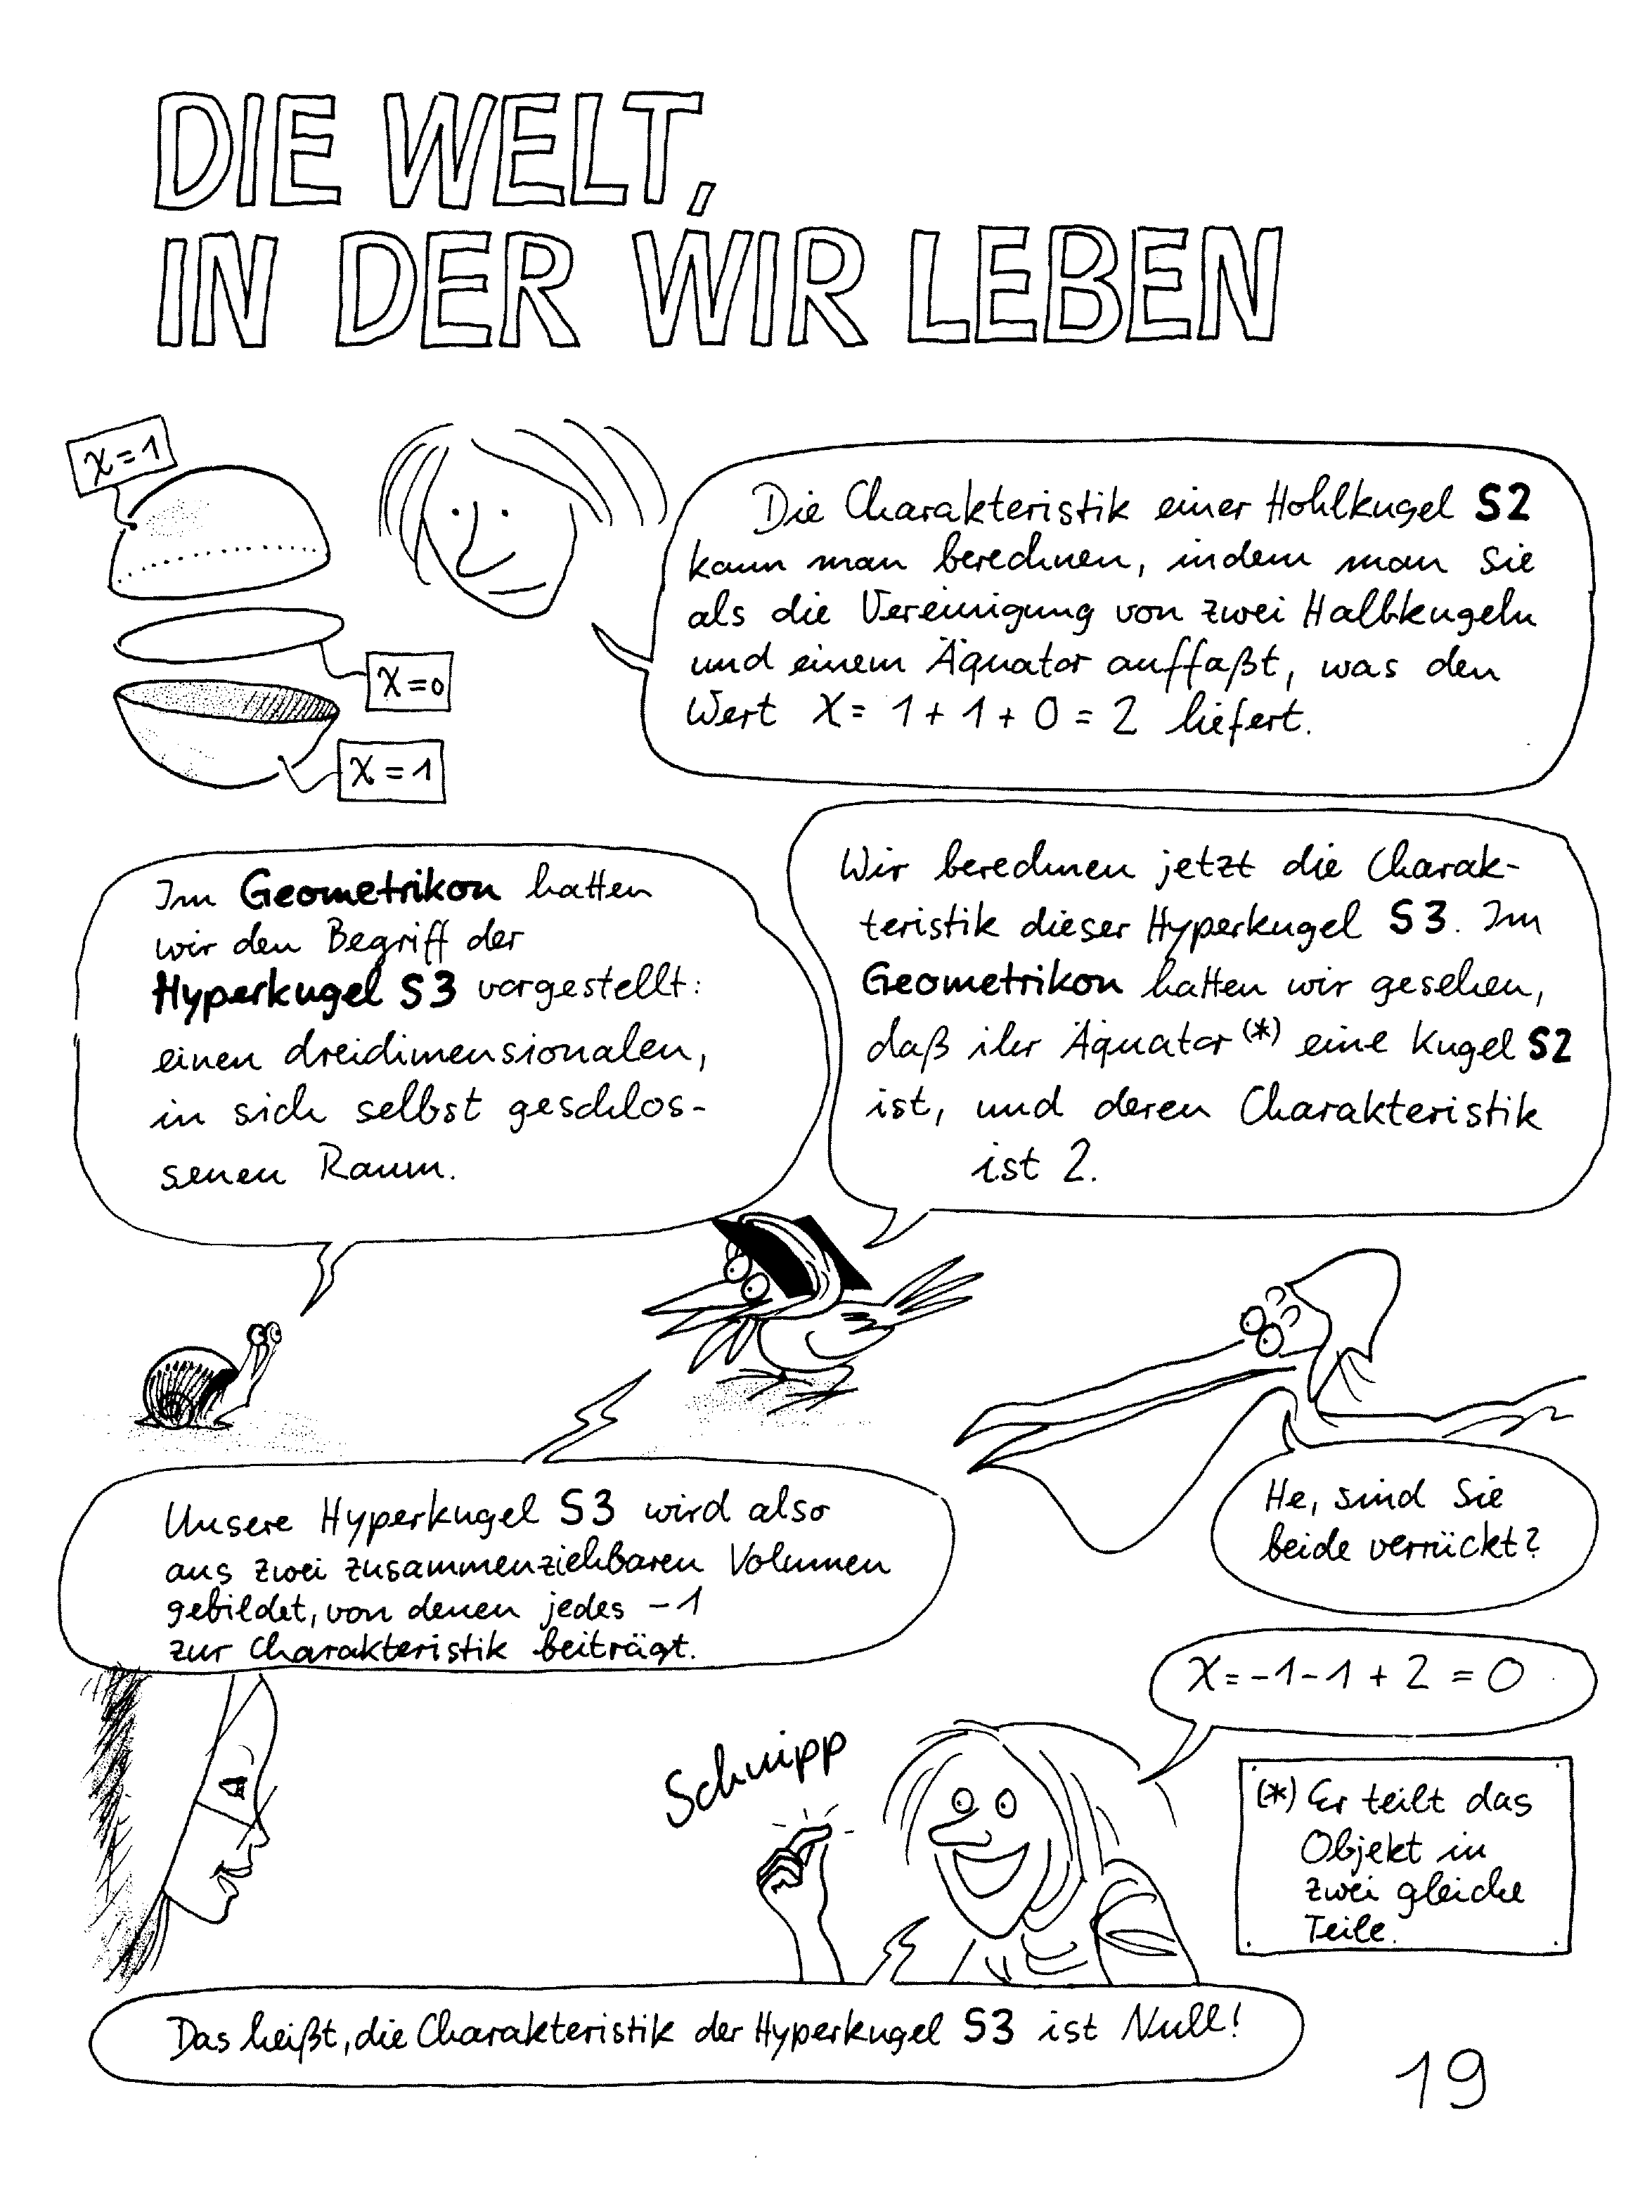 DIE WELT,
IN DER WIR LEBEN
χ=1
χ=0
χ=1
Die Charakteristik einer Hohlkugel S2
kann man berechnen, indem man sie
als die Vereinigung von zwei Halbkugeln
und einem Äquator auffaßt, was den
Wert χ= 1+1+0=2 liefert.
Im Geometrikon hatten
wir den Begriff der
Hyperkugel S3 vorgestellt:
einen dreidimensionalen,
in sich selbst geschlos-
senen Raum.
Wir berechnen jetzt die Charak-
teristik dieser Hyperkugel S3. Im
Geometrikon hatten wir gesehen,
daß ihr Äquator (*) eine Kugel S2
ist, und deren Charakteristik
ist 2.
Unsere Hyperkugel S3 wird also
aus zwei zusammenziehbaren Volumen
gebildet, von denen jedes -1
zur Charakteristik beiträgt.
He, sind Sie
beide verrückt?
χ=-1-1+2=0
Schnipp
(*) Er teilt das
Objekt in
zwei gleiche
Teile.
Das heißt, die Charakteristik der Hyperkugel S3 ist Null!
19